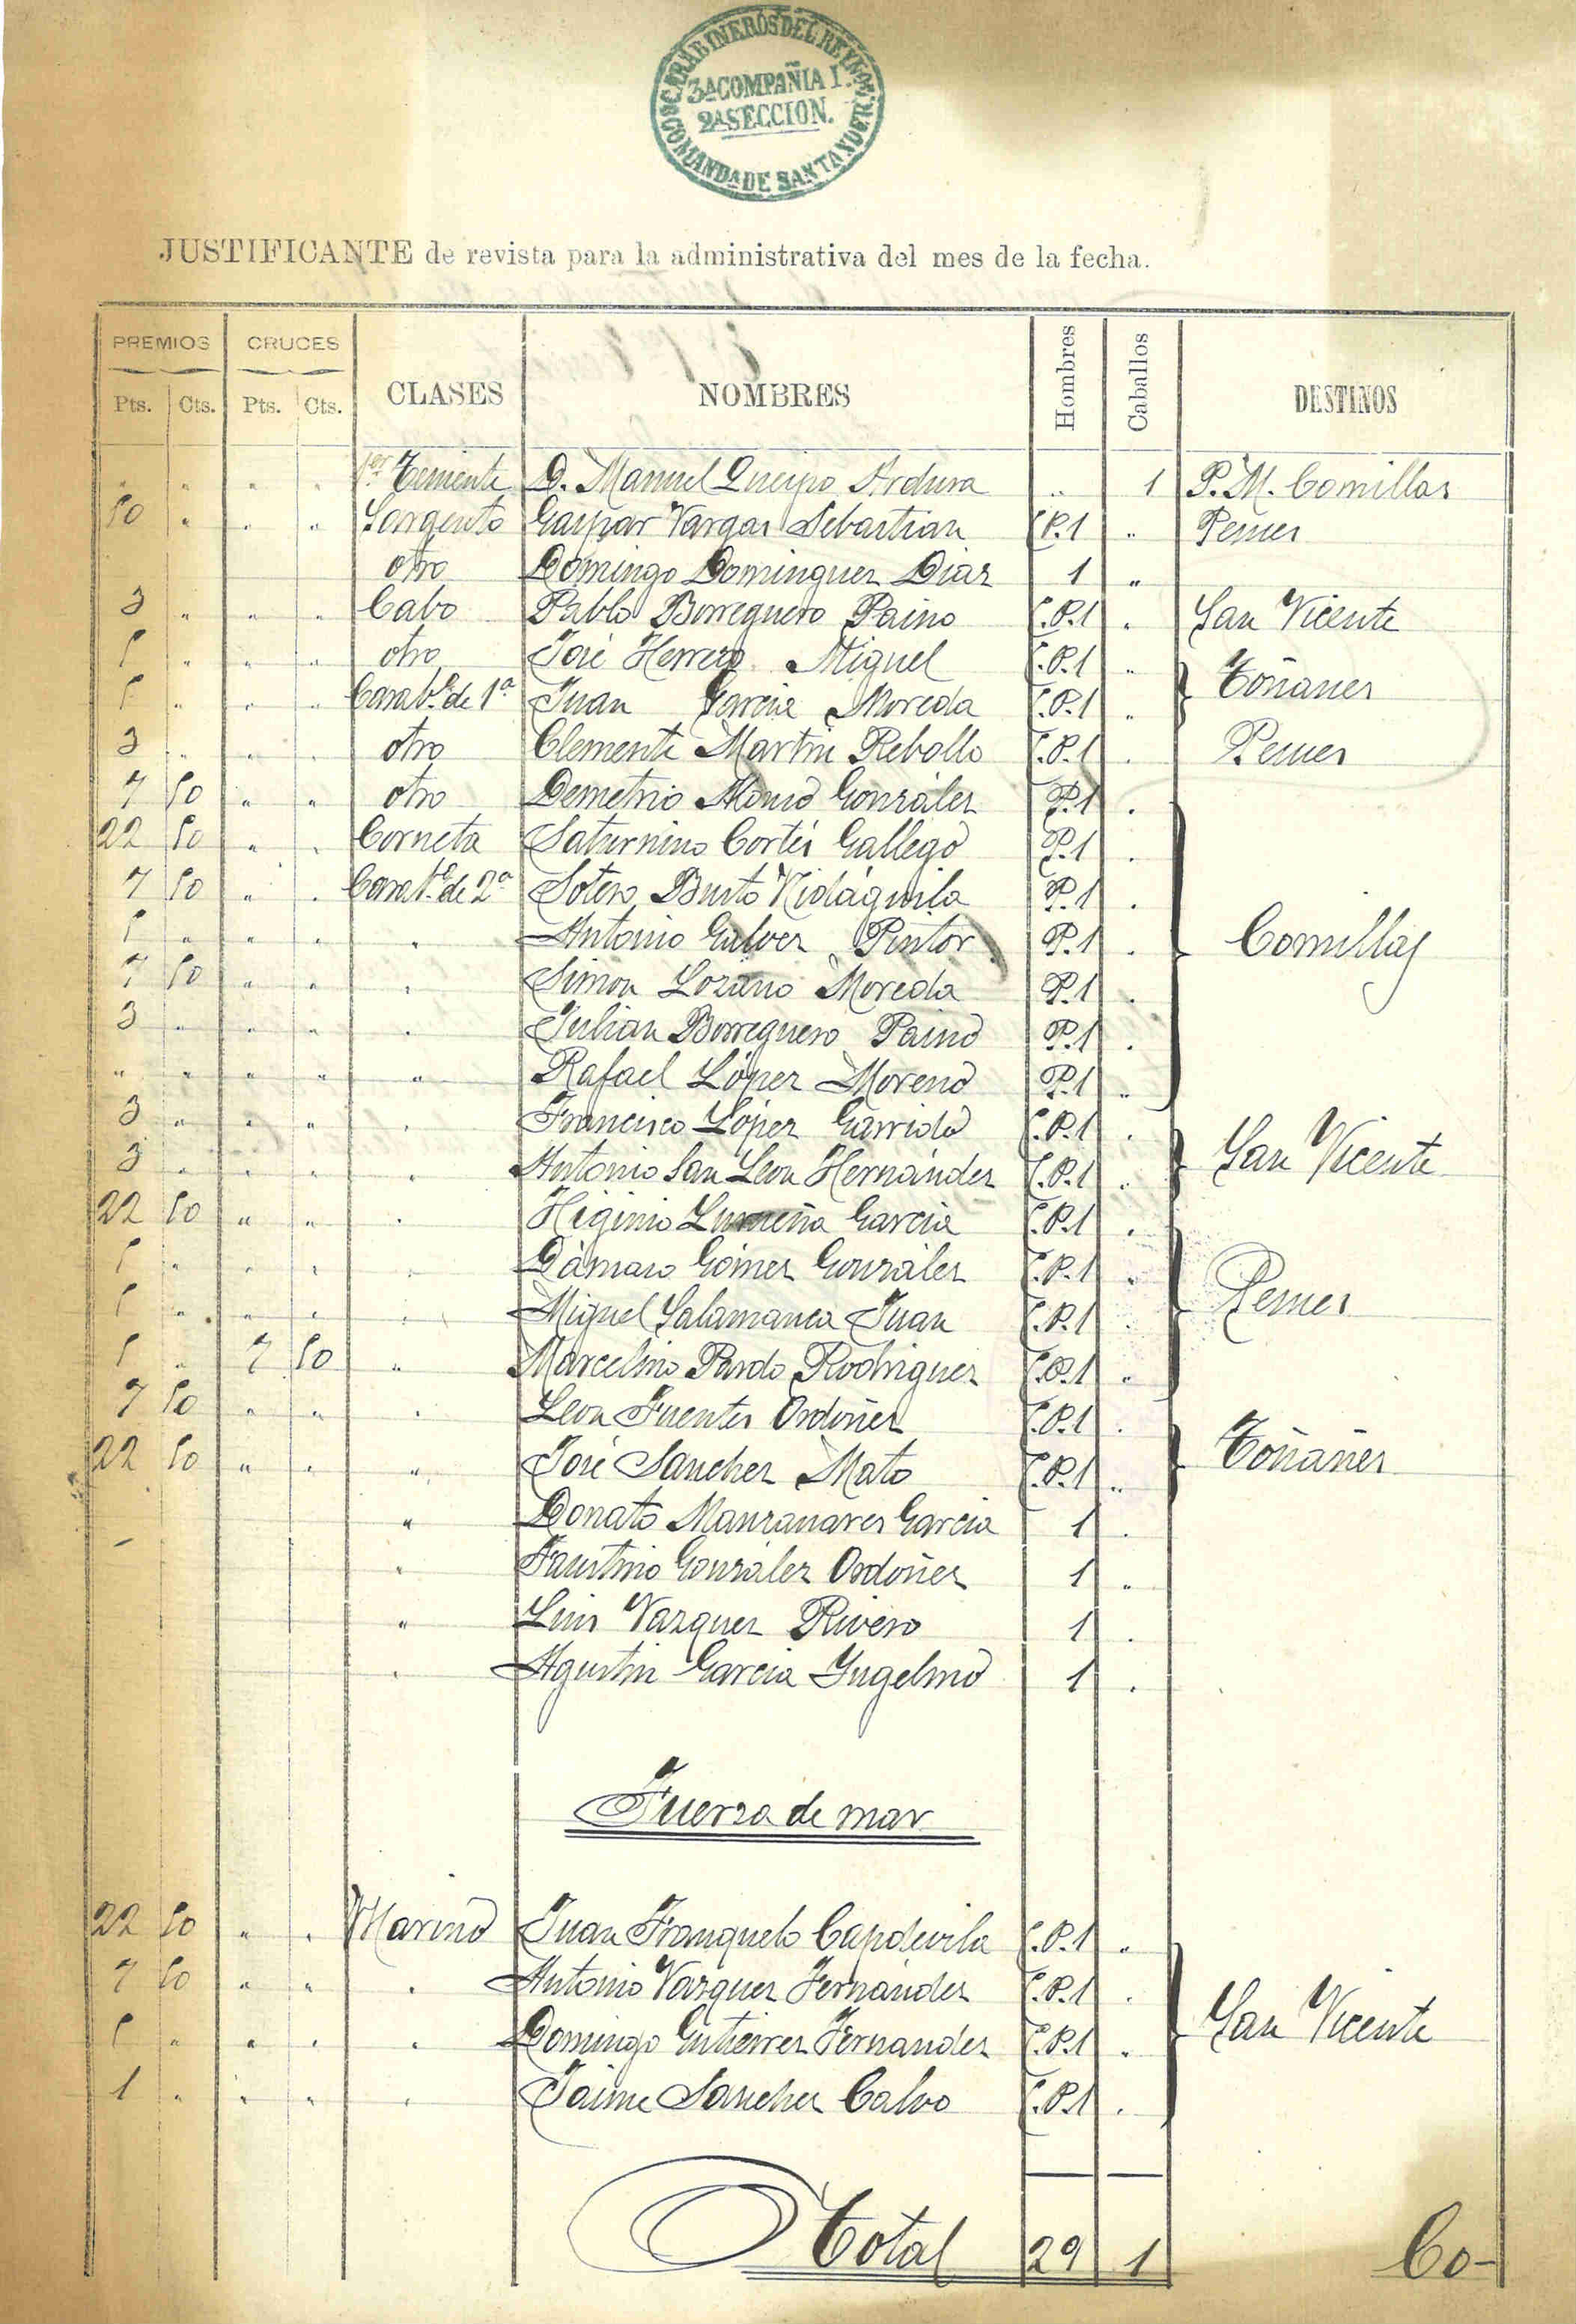 CARABINEROS DEL REYNO.
3ª COMPAÑIA I.
2ª SECCION.
COMANDA DE SANTANDER.
JUSTIFICANTE de revista para la administrativa del mes de la fecha.
PREMIOS CRUCES CLASES NOMBRES Hombres Caballos DESTINOS
Pts. Cts. Pts. Cts.
" " " " 1er Teniente D. Manuel Queipo Ardura " 1 P. M. Comillas
10 " " " Sargento Gaspar Vargas Sebastian C.P.1 " Pesues
otro Domingo Dominguez Diaz 1 "
3 " " " Cabo Pablo Borreguero Paino C.P.1 " San Vicente
5 " " " otro José Herrero Miguel C.P.1 "
Toñanes
5 " " " Carabº de 1ª Juan Garcia Moreda C.P.1 "
3 " " " otro Clemente Martin Rebollo C.P.1 " Pesues
7 50 " " otro Demetrio Alonso González P.1 "
22 50 " " Corneta Saturnino Cortés Gallego P.1 "
7 50 " " Carabº de 2ª Sotero Busto Nidáguila P.1 "
5 " " " " Antonio Galvez Pintor P.1 " Comillas
7 50 " " " Simon Lozano Moreda P.1 "
3 " " " " Julian Borreguero Paino P.1 "
" " " " " Rafael López Moreno P.1 "
3 " " " " Francisco López Garrido C.P.1 "
San Vicente
3 " " " " Antonio San Leon Hernández C.P.1 "
22 50 " " " Higinio Garcia C.P.1 "
5 " " " " Dámaso Gómez González C.P.1 "
Pesues
5 " " " " Miguel Salamanca Juan C.P.1 "
5 " 7 50 " Marcelino Pardo Rodriguez C.P.1 "
7 50 " " " Leon Fuentes Ordoñez C.P.1 "
Toñanes
22 50 " " " José Sanchez Mato C.P.1 "
" Donato Manzanares Garcia 1 "
" Faustino González Ordoñez 1 "
" Luis Vazquez Rivero 1 "
" Agustin Garcia Yugelmo 1 "
Fuerza de mar
22 50 " " Marino Juan Franquelo Capdevila C.P.1 "
7 50 " " " Antonio Vazquez Fernández C.P.1 "
San Vicente
5 " " " " Domingo Gutierrez Fernandez C.P.1 "
1 " " " " Jaime Sanchez Calvo C.P.1 "
Total 29 1 Co-